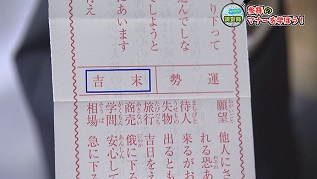 マナーを学ぼう！
りって
んでしな
しようと
にあいます
運勢
末吉
願望 他人にさ
れる恐あ
待人 来るがお
失物 出るとも
旅行 吉日え
商売 俄に下
学問 安心して
相場 急に下